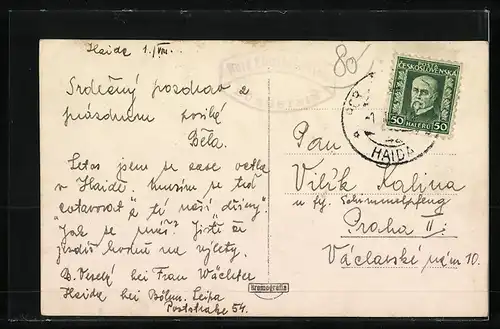 Haida 1./VIII.
80
POŠTA
ČESKOSLOVENSKÁ
50 HALÉŘŮ 50
HAIDA
Srdečný pozdrav z
prázdnin posílá
Běla.
Letos jsem se zase octla
v Haidě. Musím se teď
"zotavovat" z té naší dřiny.
Jak se máš? Jistě si
jezdíš hodně na výlety.
B. Veselá bei Frau Wächter
Haida bei Böhm. Leipa
Poststraße 54.
Pan
Vilík Kalina
u fy. Schimmelpfeng
Praha II.
Václavské nám 10.
Bromografia